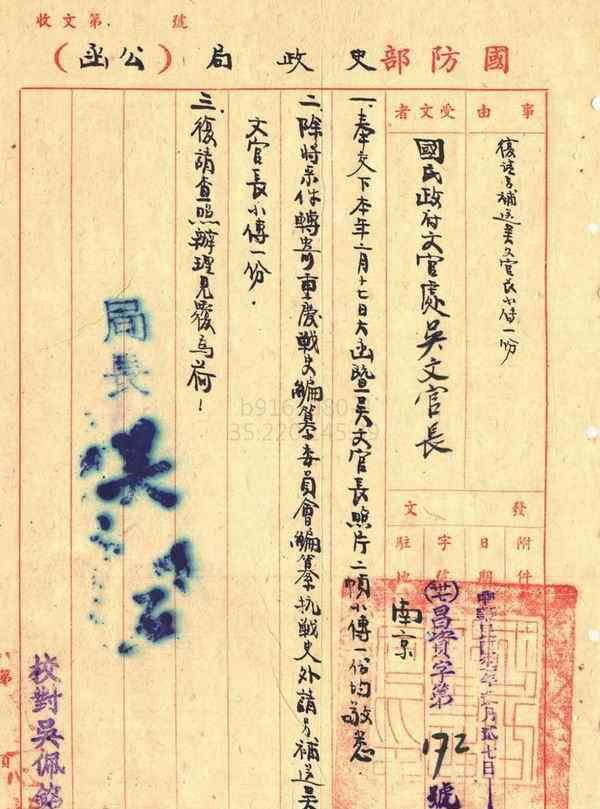 收文第 號
國防部史政局(公函)
事由
復請另補送吳文官長小傳一份
受文者
國民政府文官處吳文官長
發文
附件
日期
字號
駐地
貳七日
昌資字第172號
南京
一、奉交下本年二月十七日大函暨吳文官長照片二幀小傳一份均敬悉
二、除將來件轉寄重慶戰史編纂委員會編纂抗戰史外請另補送吳
文官長小傳一份.
三、復請查照辦理見覆為荷!
局長吳石
校對吳佩
第
頁